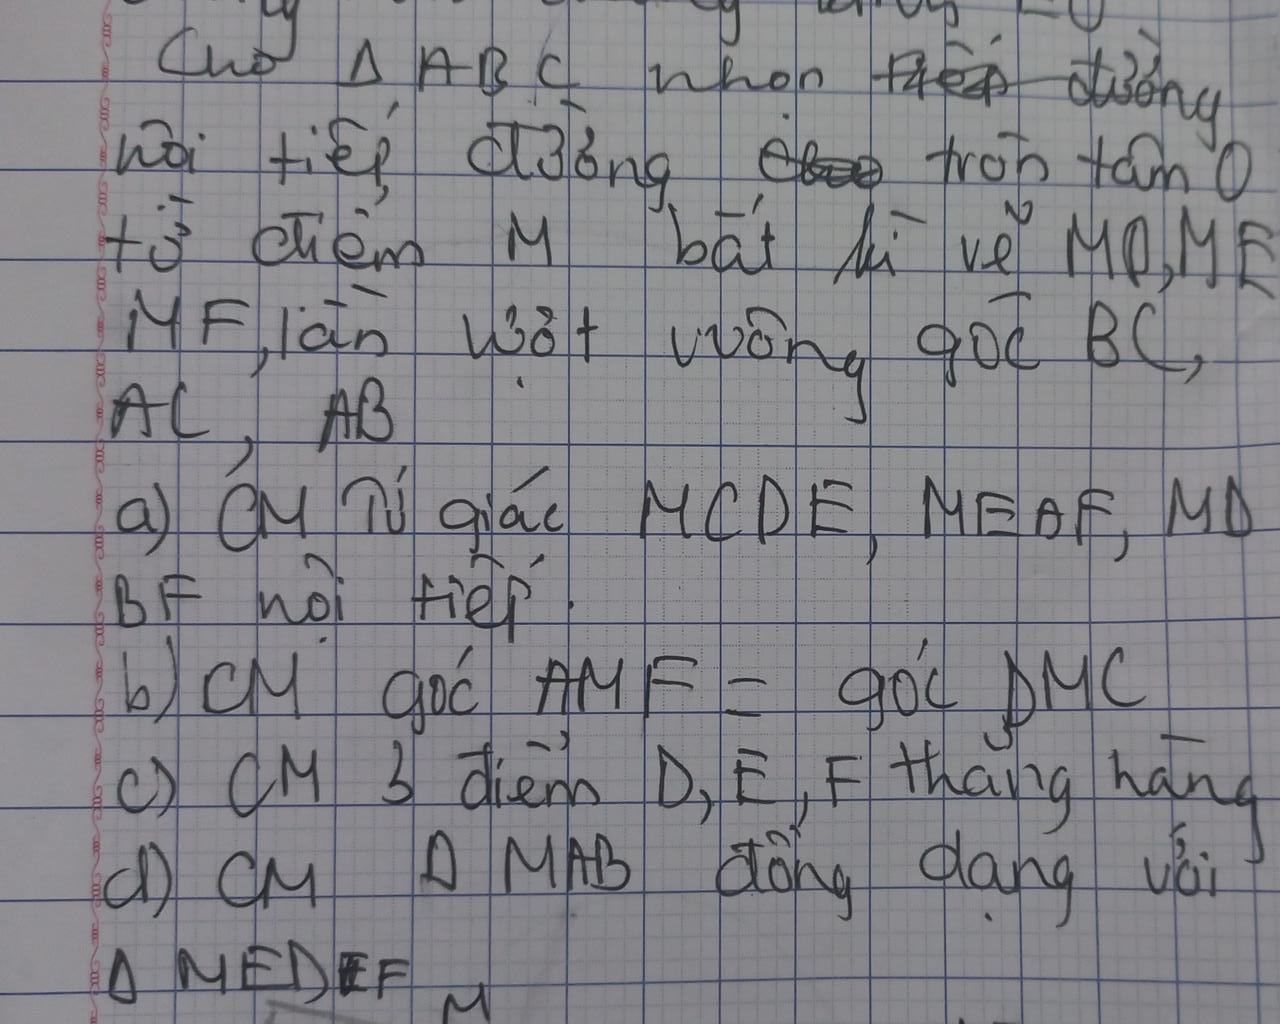 Cho Δ ABC nhọn đường
nội tiếp đường tròn tâm O
từ điểm M bất kì vẽ MD, ME
MF, lần lượt vuông góc BC,
AC, AB
a) CM Tứ giác MCDE, MEAF, MD
BF nội tiếp.
b) CM góc AMF = góc DMC
c) CM 3 điểm D, E, F thẳng hàng
d) CM Δ MAB đồng dạng với
Δ MEDEF
M